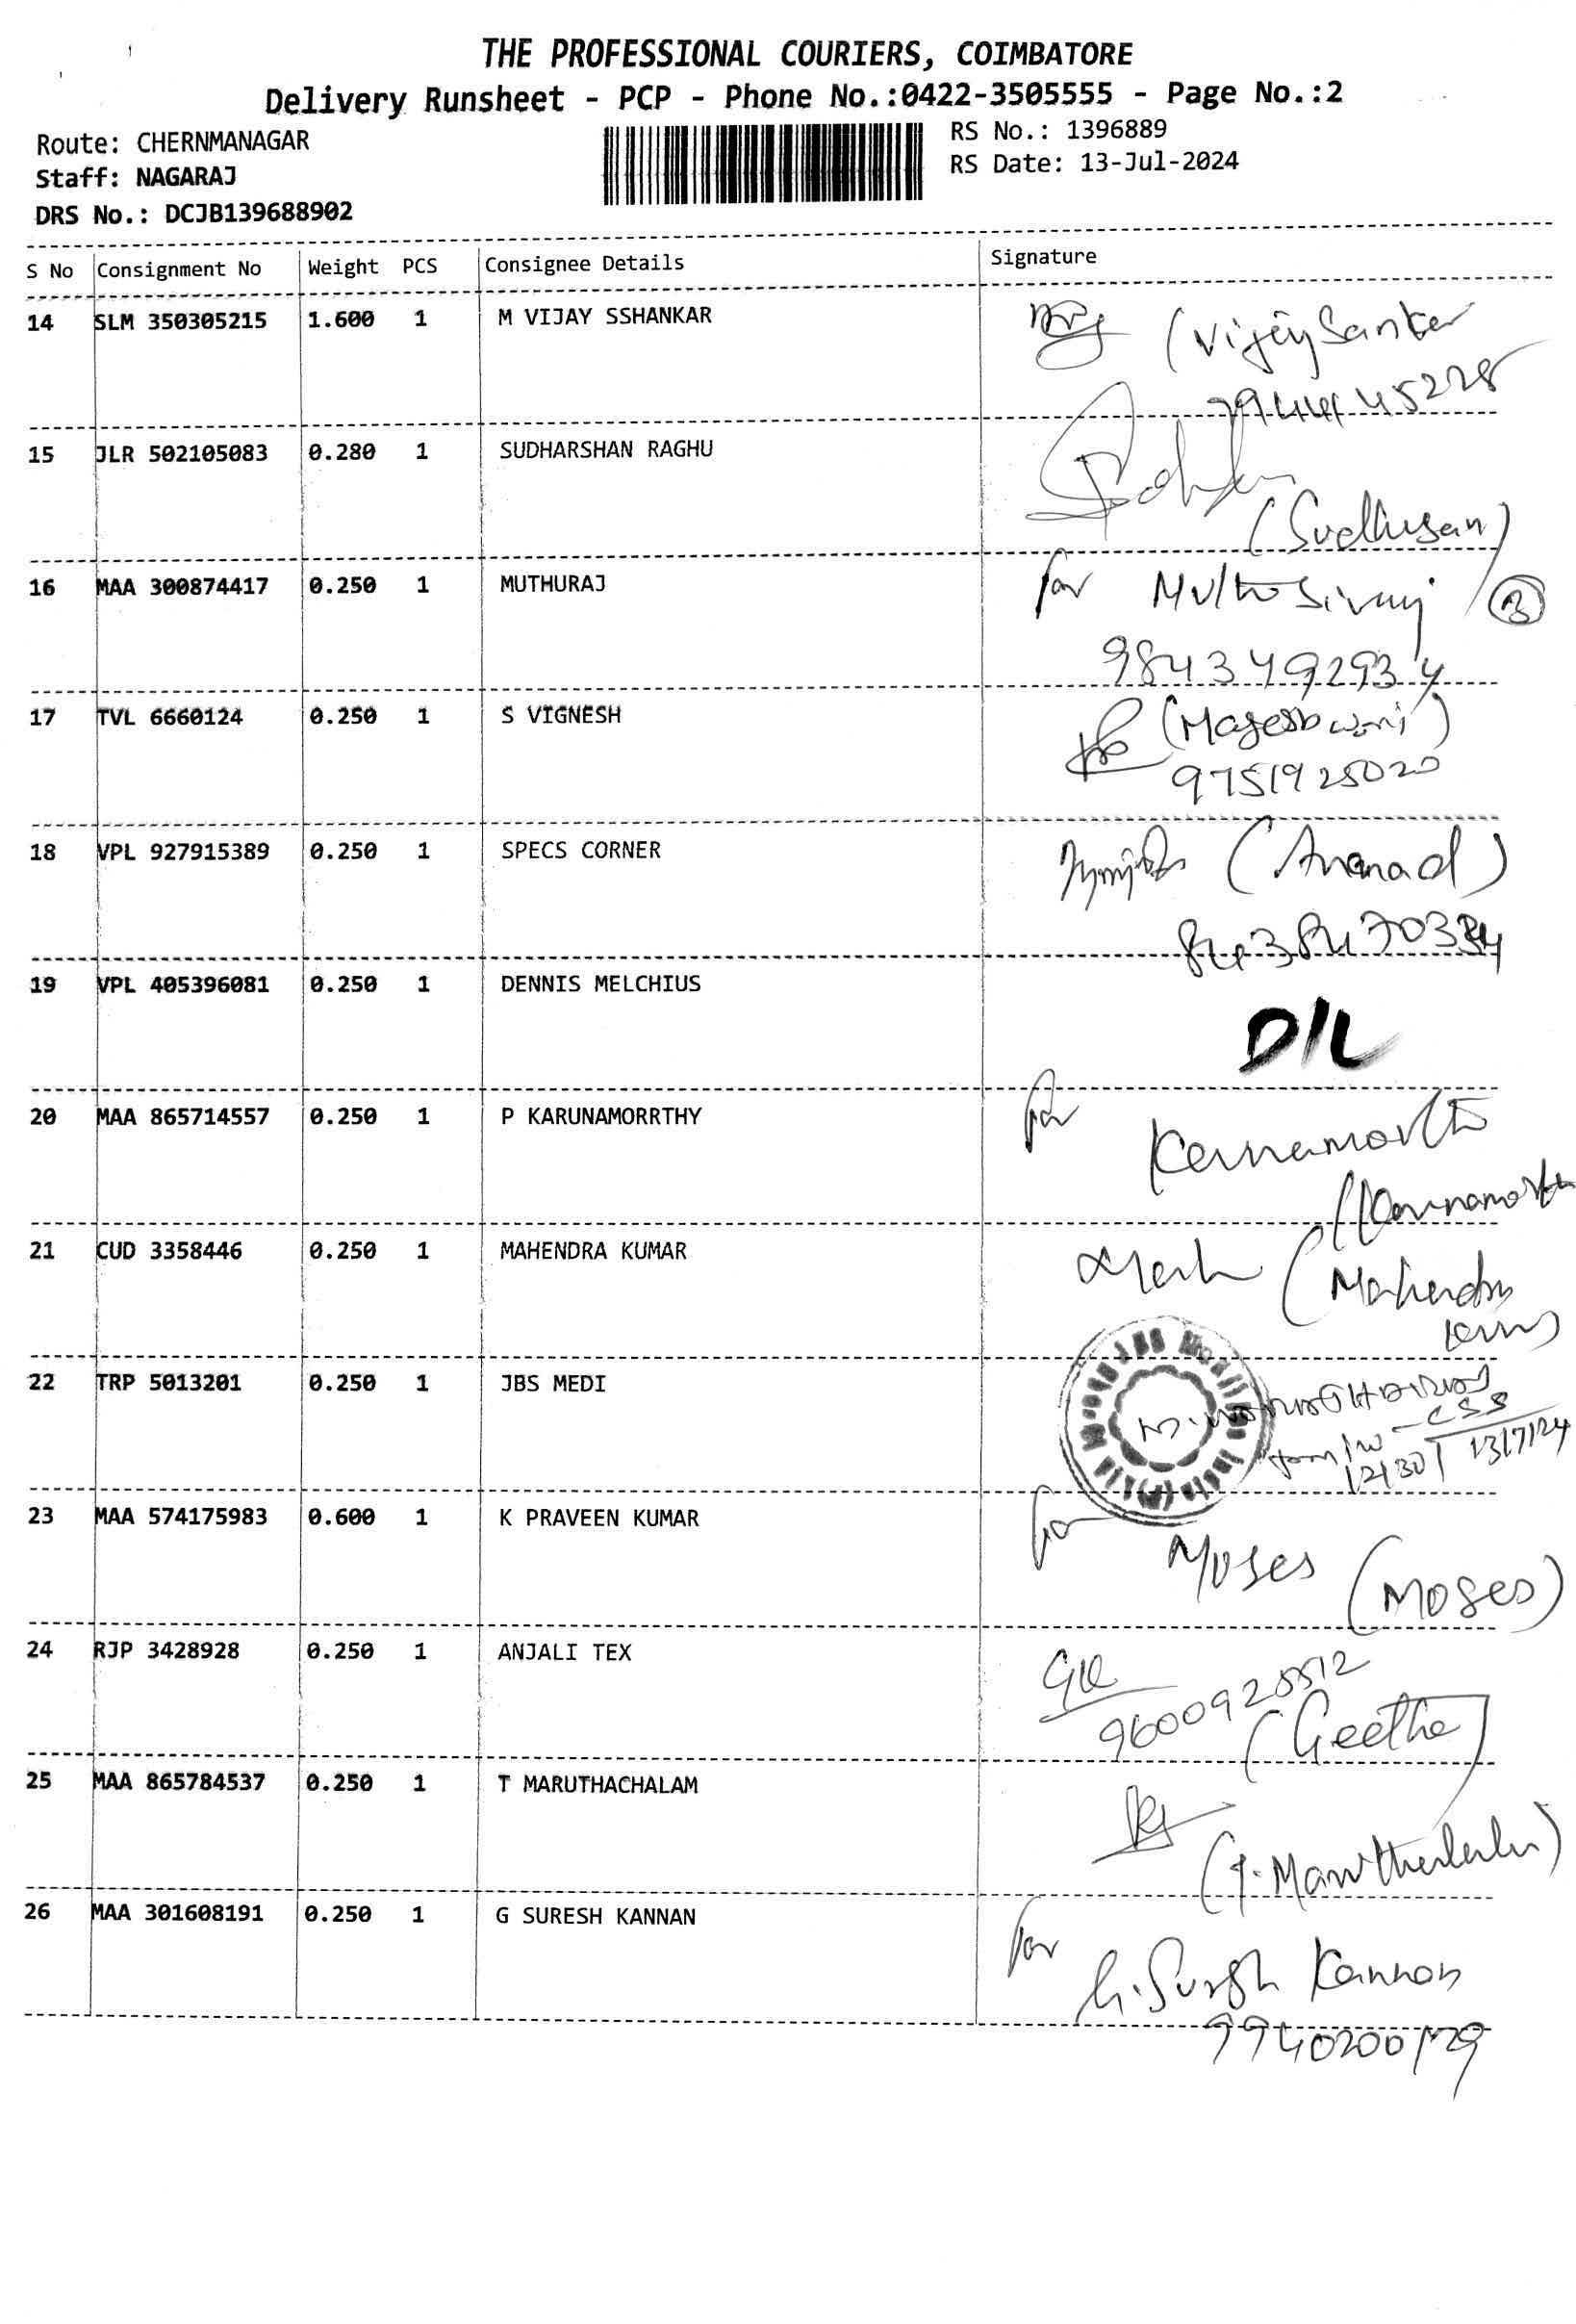 THE PROFESSIONAL COURIERS, COIMBATORE
Delivery Runsheet - PCP - Phone No.:0422-3505555 - Page No.:2
Route: CHERNMANAGAR
RS No.: 1396889
Staff: NAGARAJ
RS Date: 13-Jul-2024
DRS No.: DCJB139688902
S No Consignment No Weight PCS Consignee Details Signature
14 SLM 350305215 1.600 1 M VIJAY SSHANKAR
15 JLR 502105083 0.280 1 SUDHARSHAN RAGHU
16 MAA 300874417 0.250 1 MUTHURAJ for
9843492934
17 TVL 6660124 0.250 1 S VIGNESH
9751925020
18 VPL 927915389 0.250 1 SPECS CORNER
19 VPL 405396081 0.250 1 DENNIS MELCHIUS D/L
20 MAA 865714557 0.250 1 P KARUNAMORRTHY for
21 CUD 3358446 0.250 1 MAHENDRA KUMAR
22 TRP 5013201 0.250 1 JBS MEDI
12/30 13/7/24
23 MAA 574175983 0.600 1 K PRAVEEN KUMAR for
Moses (Moses)
24 RJP 3428928 0.250 1 ANJALI TEX
(Geetha)
25 MAA 865784537 0.250 1 T MARUTHACHALAM
26 MAA 301608191 0.250 1 G SURESH KANNAN for
G. Suresh Kannan